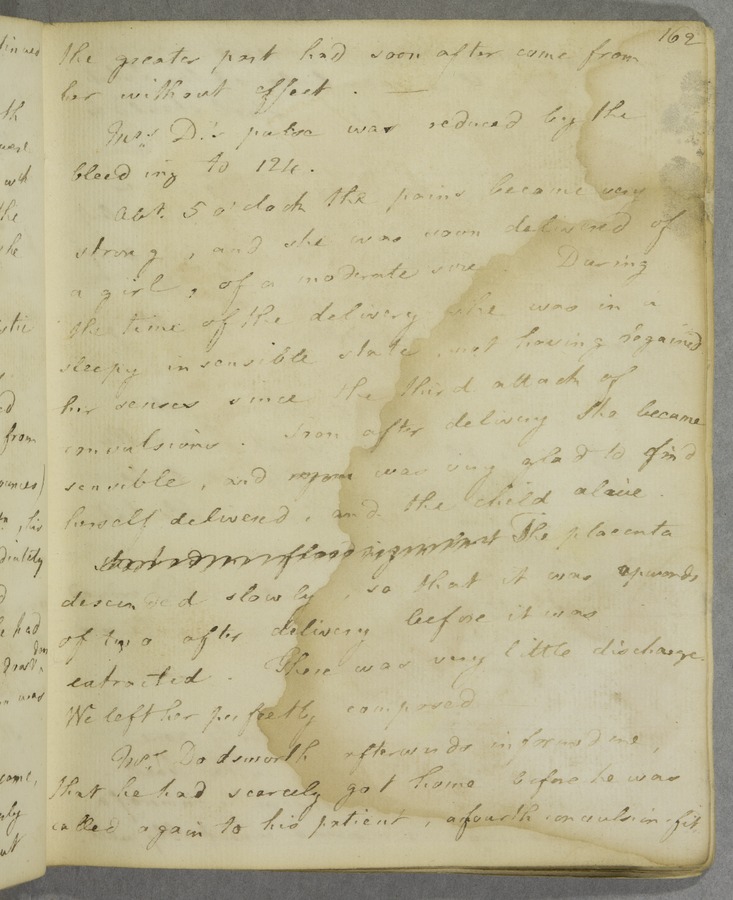 162
the greater part had soon after come from
her without effect. —
Mrs. D.'s pulse was reduced by the
bleeding to 124.
Abt. 5 o'clock the pains became very
strong, and she was soon delivered of
a girl, of a moderate size. During
the time of the delivery she was in a
sleepy insensible state, not having regained
her senses since the third attack of
convulsions. Soon after delivery she became
sensible, and was very glad to find
herself delivered, and the child alive.
The placenta
descended slowly, so that it was upwards
of two after delivery before it was
extracted. There was very little discharge.
We left her perfectly composed
Mr. Dodsworth afterwards informed me,
that he had scarcely got home before he was
called again to his patient, a fourth convulsion fit